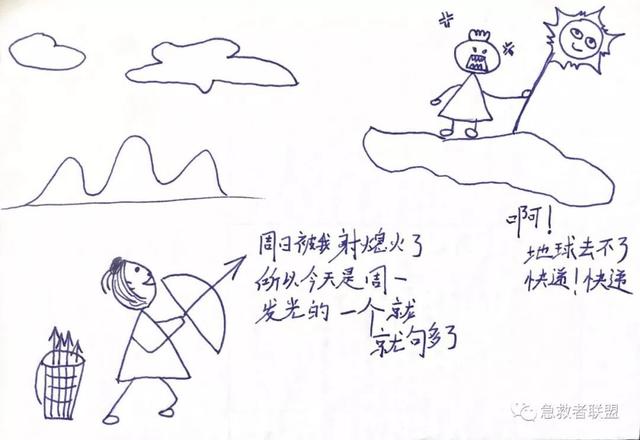 啊!
地球去不了
快递!快递
周日被我射熄火了
所以今天是周一
发光的一个就
就句多了
急救者联盟